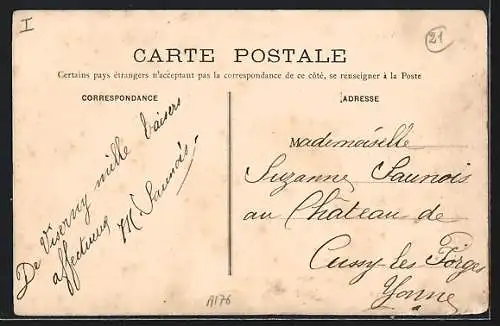 I
21
CARTE POSTALE
Certains pays étrangers n'acceptant pas la correspondance de ce côté, se renseigner à la Poste
CORRESPONDANCE
De Viserny mille baisers
affectueux
M Saunois
ADRESSE
Mademoiselle
Suzanne Saunois
au Château de
Cussy les Forges
Yonne
A176